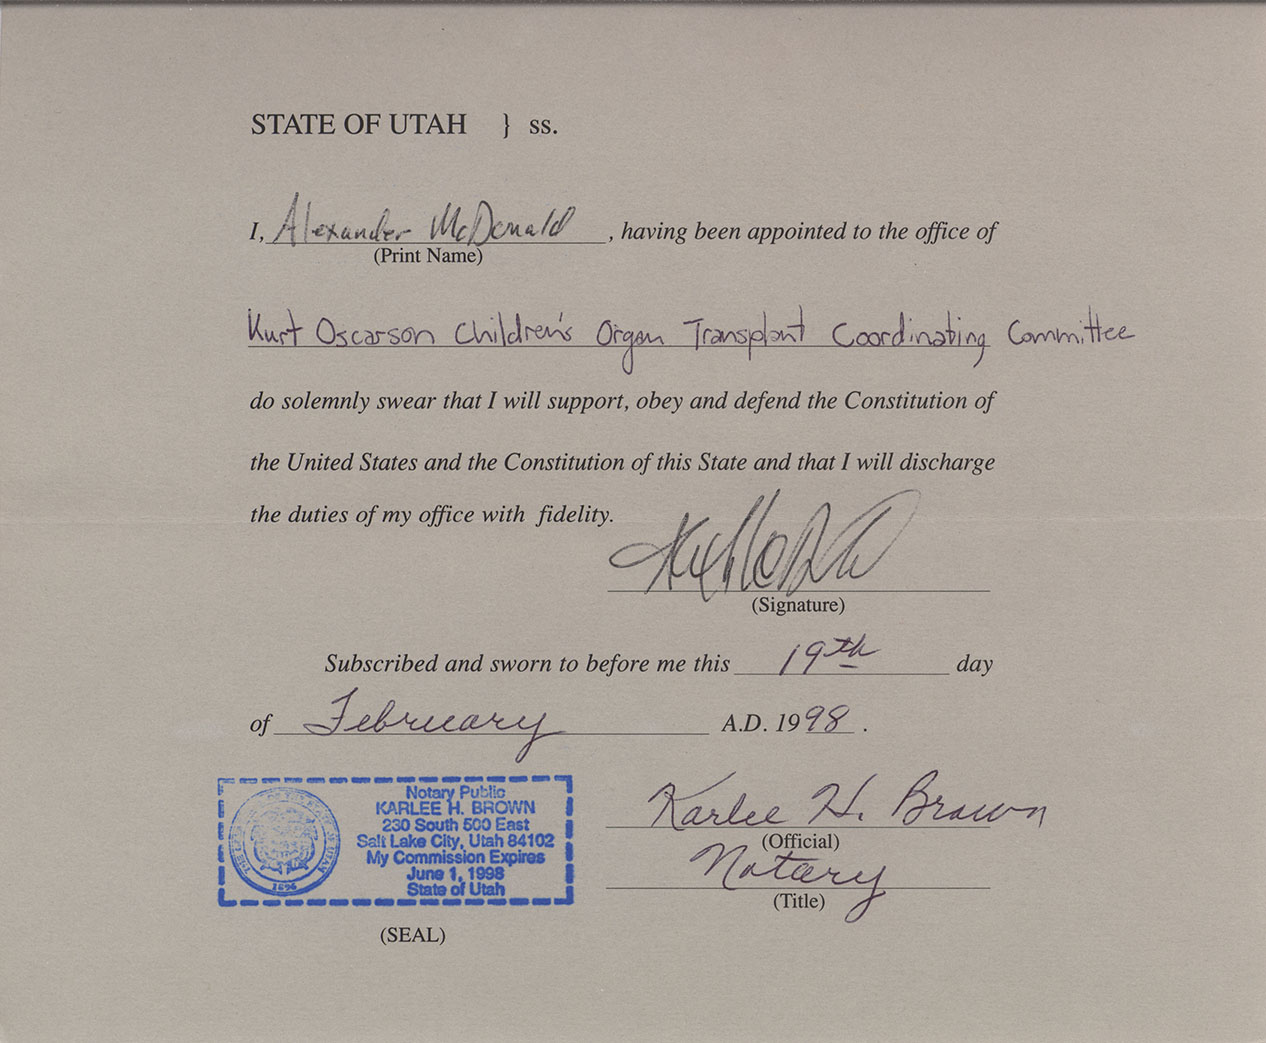 STATE OF UTAH } ss.
I, Alexander McDonald , having been appointed to the office of
(Print Name)
Kurt Oscarson Children's Organ Transplant Coordinating Committee
do solemnly swear that I will support, obey and defend the Constitution of
the United States and the Constitution of this State and that I will discharge
the duties of my office with fidelity.
(Signature)
Subscribed and sworn to before me this 19th day
of February A.D. 1998 .
Notary Public
KARLEE H. BROWN
230 South 500 East
Salt Lake City, Utah 84102
My Commission Expires
June 1, 1998
State of Utah
1896
(SEAL)
Karlee H. Brown
(Official)
Notary
(Title)